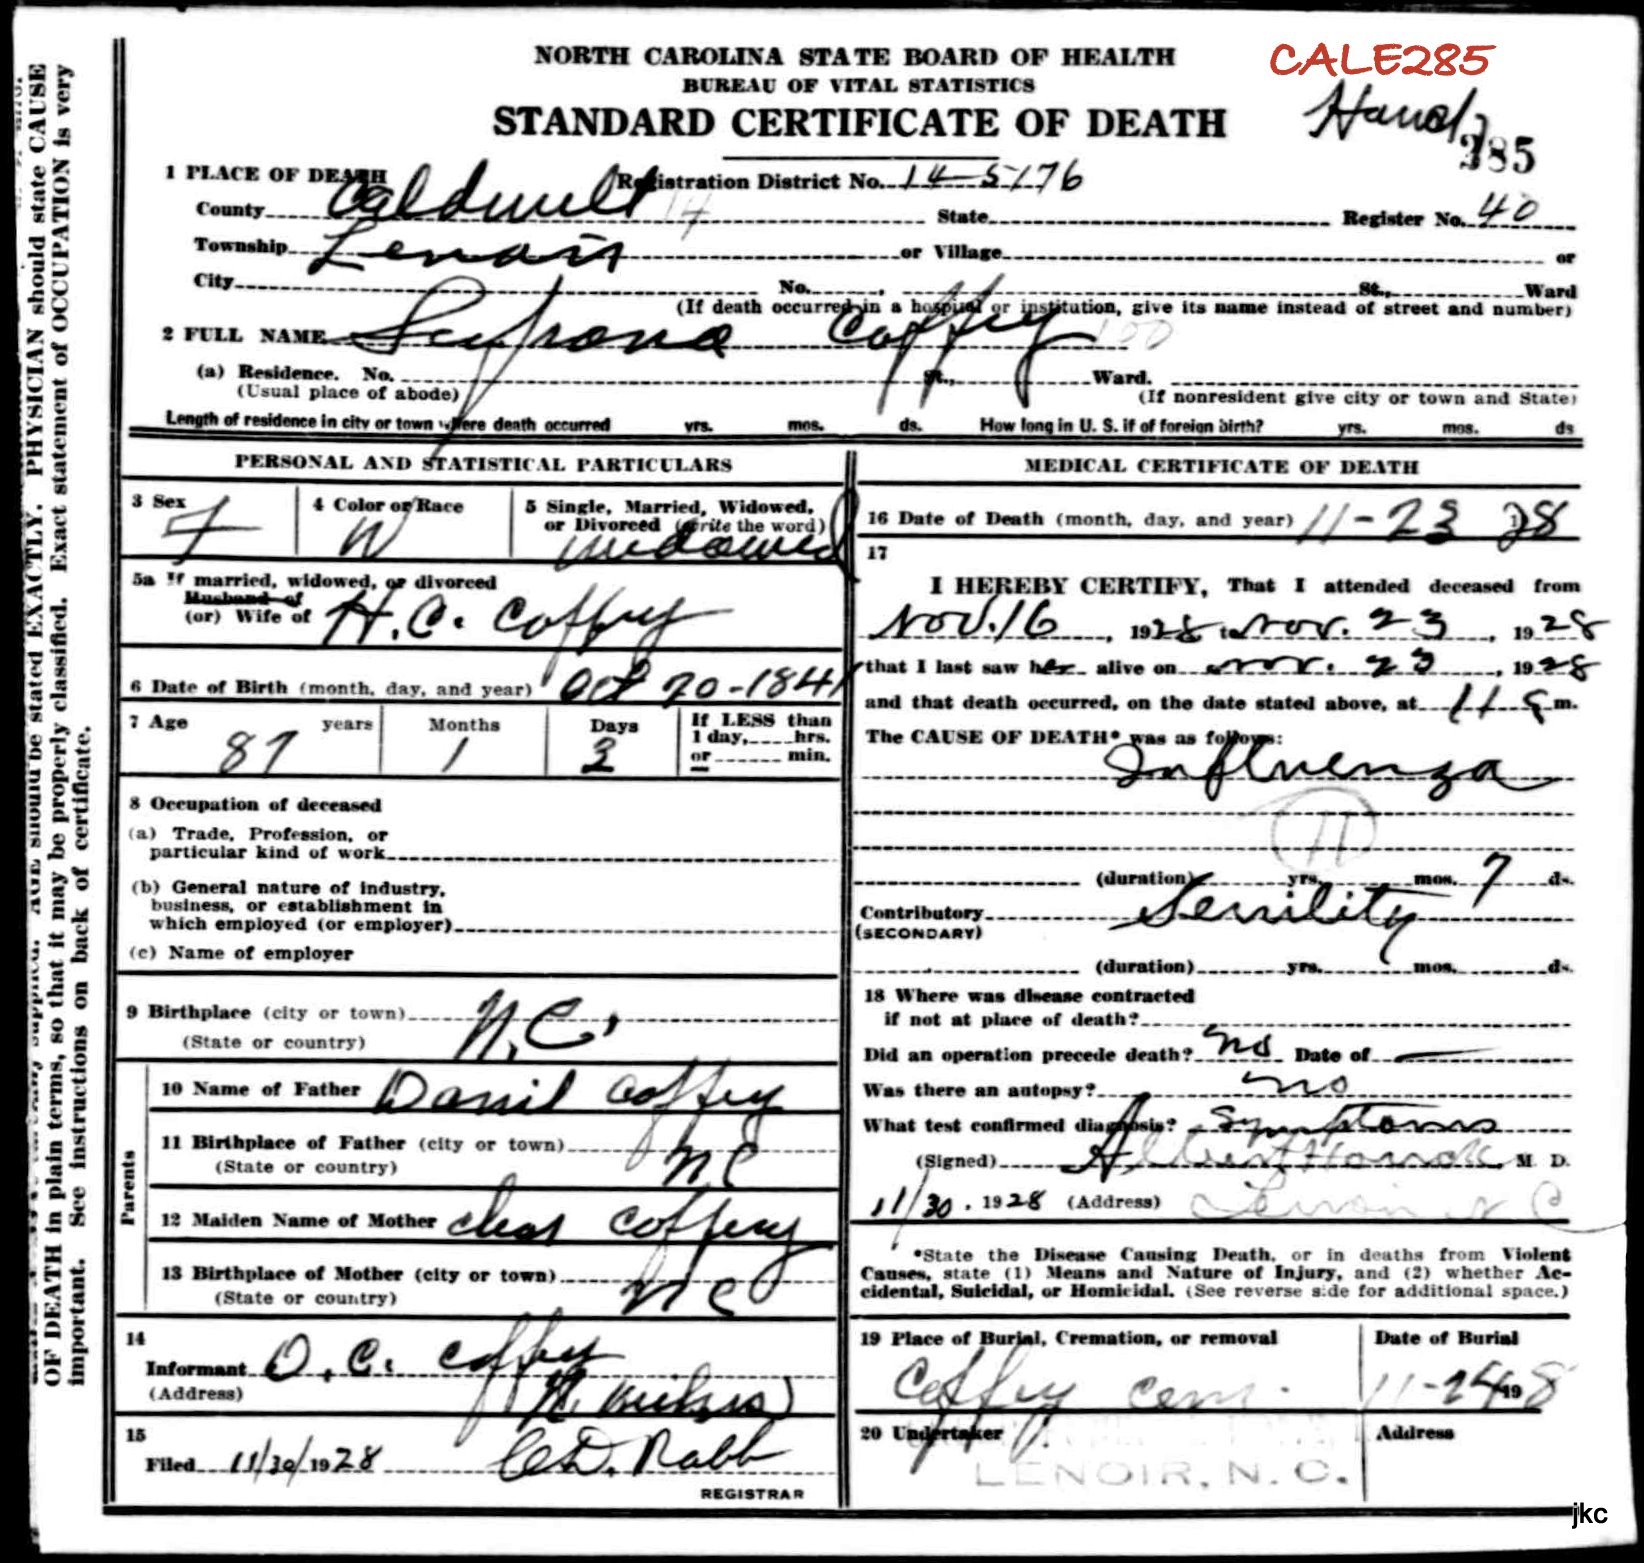 NORTH CAROLINA STATE BOARD OF HEALTH
CALE285
BUREAU OF VITAL STATISTICS
STANDARD CERTIFICATE OF DEATH
385
1 PLACE OF DEATH
Registration District No. 14-5176
County Caldwell 14 State Register No. 40
Township Lenoir or Village or
City No. , St., Ward
(If death occurred in a hospital or institution, give its name instead of street and number)
2 FULL NAME Coffey 100
(a) Residence. No. St., Ward.
(Usual place of abode) (If nonresident give city or town and State)
Length of residence in city or town where death occurred yrs. mos. ds. How long in U. S. if of foreign birth? yrs. mos. ds
PERSONAL AND STATISTICAL PARTICULARS
3 Sex F
4 Color or Race W
5 Single, Married, Widowed, or Divorced (write the word) widowed
5a If married, widowed, or divorced
Husband of
(or) Wife of H.C. Coffey
6 Date of Birth (month, day, and year) Oct 20-1841
7 Age years Months Days If LESS than
1 day, hrs.
or min.
87 1 3
8 Occupation of deceased
(a) Trade, Profession, or
particular kind of work
(b) General nature of industry,
business, or establishment in
which employed (or employer)
(c) Name of employer
9 Birthplace (city or town) N.C.
(State or country)
Parents
10 Name of Father Danil Coffey
11 Birthplace of Father (city or town)
(State or country) NC
12 Maiden Name of Mother Coffey
13 Birthplace of Mother (city or town)
(State or country) NC
14
Informant O.C. Coffey
(Address)
15
Filed 11/30/1928 C.D. Rabb
REGISTRAR
MEDICAL CERTIFICATE OF DEATH
16 Date of Death (month, day, and year) 11-23 28
17
I HEREBY CERTIFY, That I attended deceased from
Nov. 16, 1928 to Nov. 23, 1928
that I last saw her alive on Nov. 23, 1928
and that death occurred, on the date stated above, at 11 a m.
The CAUSE OF DEATH* was as follows:
Influenza
11
(duration) yrs. mos. 7 ds.
Contributory Senility
(SECONDARY)
(duration) yrs. mos. ds.
18 Where was disease contracted
if not at place of death?
Did an operation precede death? no Date of —
Was there an autopsy? no
What test confirmed diagnosis? Symptoms
(Signed) Albert M. D.
11/30, 1928 (Address) Lenoir N C
*State the Disease Causing Death, or in deaths from Violent
Causes, state (1) Means and Nature of Injury, and (2) whether Ac-
cidental, Suicidal, or Homicidal. (See reverse side for additional space.)
19 Place of Burial, Cremation, or removal
Coffey Cem.
Date of Burial
11-24 1928
20 Undertaker
Address
LENOIR, N. C.
AGE should be stated EXACTLY. PHYSICIAN should state CAUSE
OF DEATH in plain terms, so that it may be properly classified. Exact statement of OCCUPATION is very
important. See instructions on back of certificate.
jkc